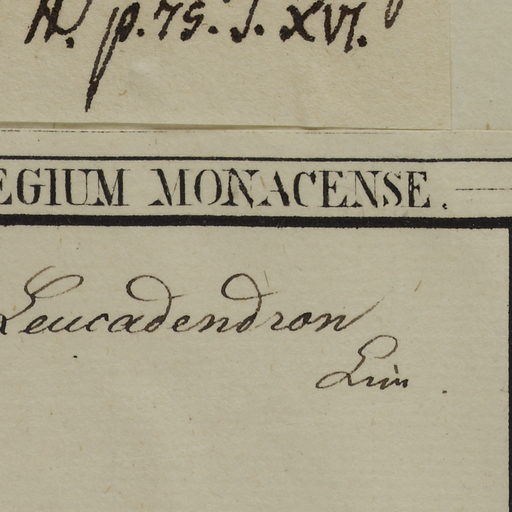 p. 75. t. XVI.
EGIUM MONACENSE.
Leucadendron
Lin.